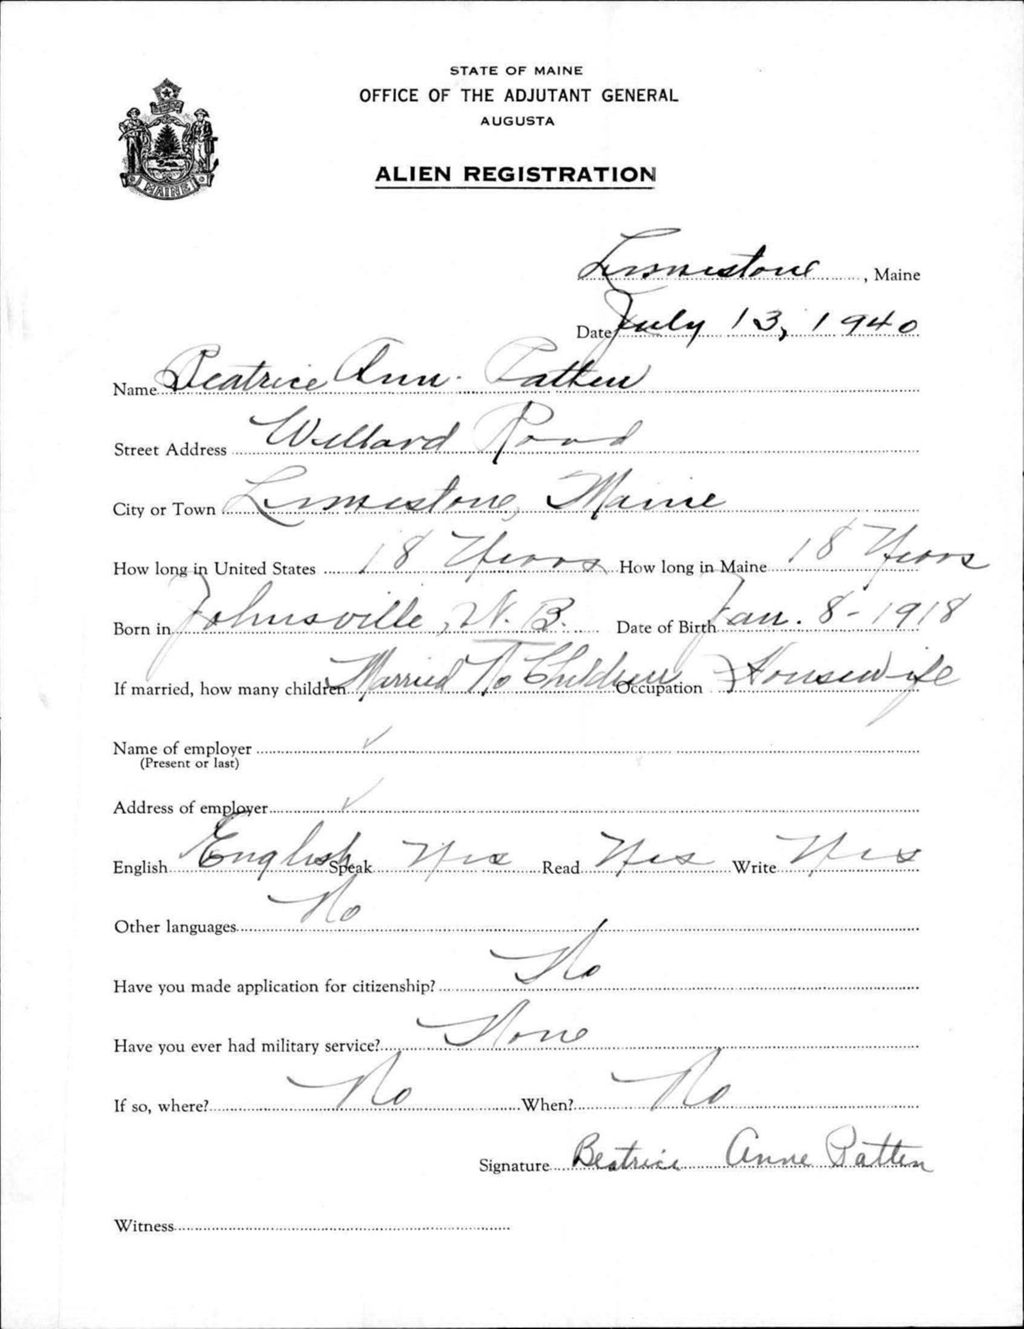 STATE OF MAINE
OFFICE OF THE ADJUTANT GENERAL
AUGUSTA
ALIEN REGISTRATION
MAINE
Limestone, Maine
Date July 13, 1940
Name Beatrice Ann Patten
Street Address Willard Road
City or Town Limestone, Maine
How long in United States 18 Years How long in Maine 18 Years
Born in Johnsville, N. B. Date of Birth Jan. 8-1918
If married, how many children Married No Children Occupation Housewife
Name of employer ✓
(Present or last)
Address of employer ✓
English English Speak Yes Read Yes Write Yes
Other languages No
Have you made application for citizenship? No
Have you ever had military service? None
If so, where? No When? No
Signature Beatrice Anne Patten
Witness